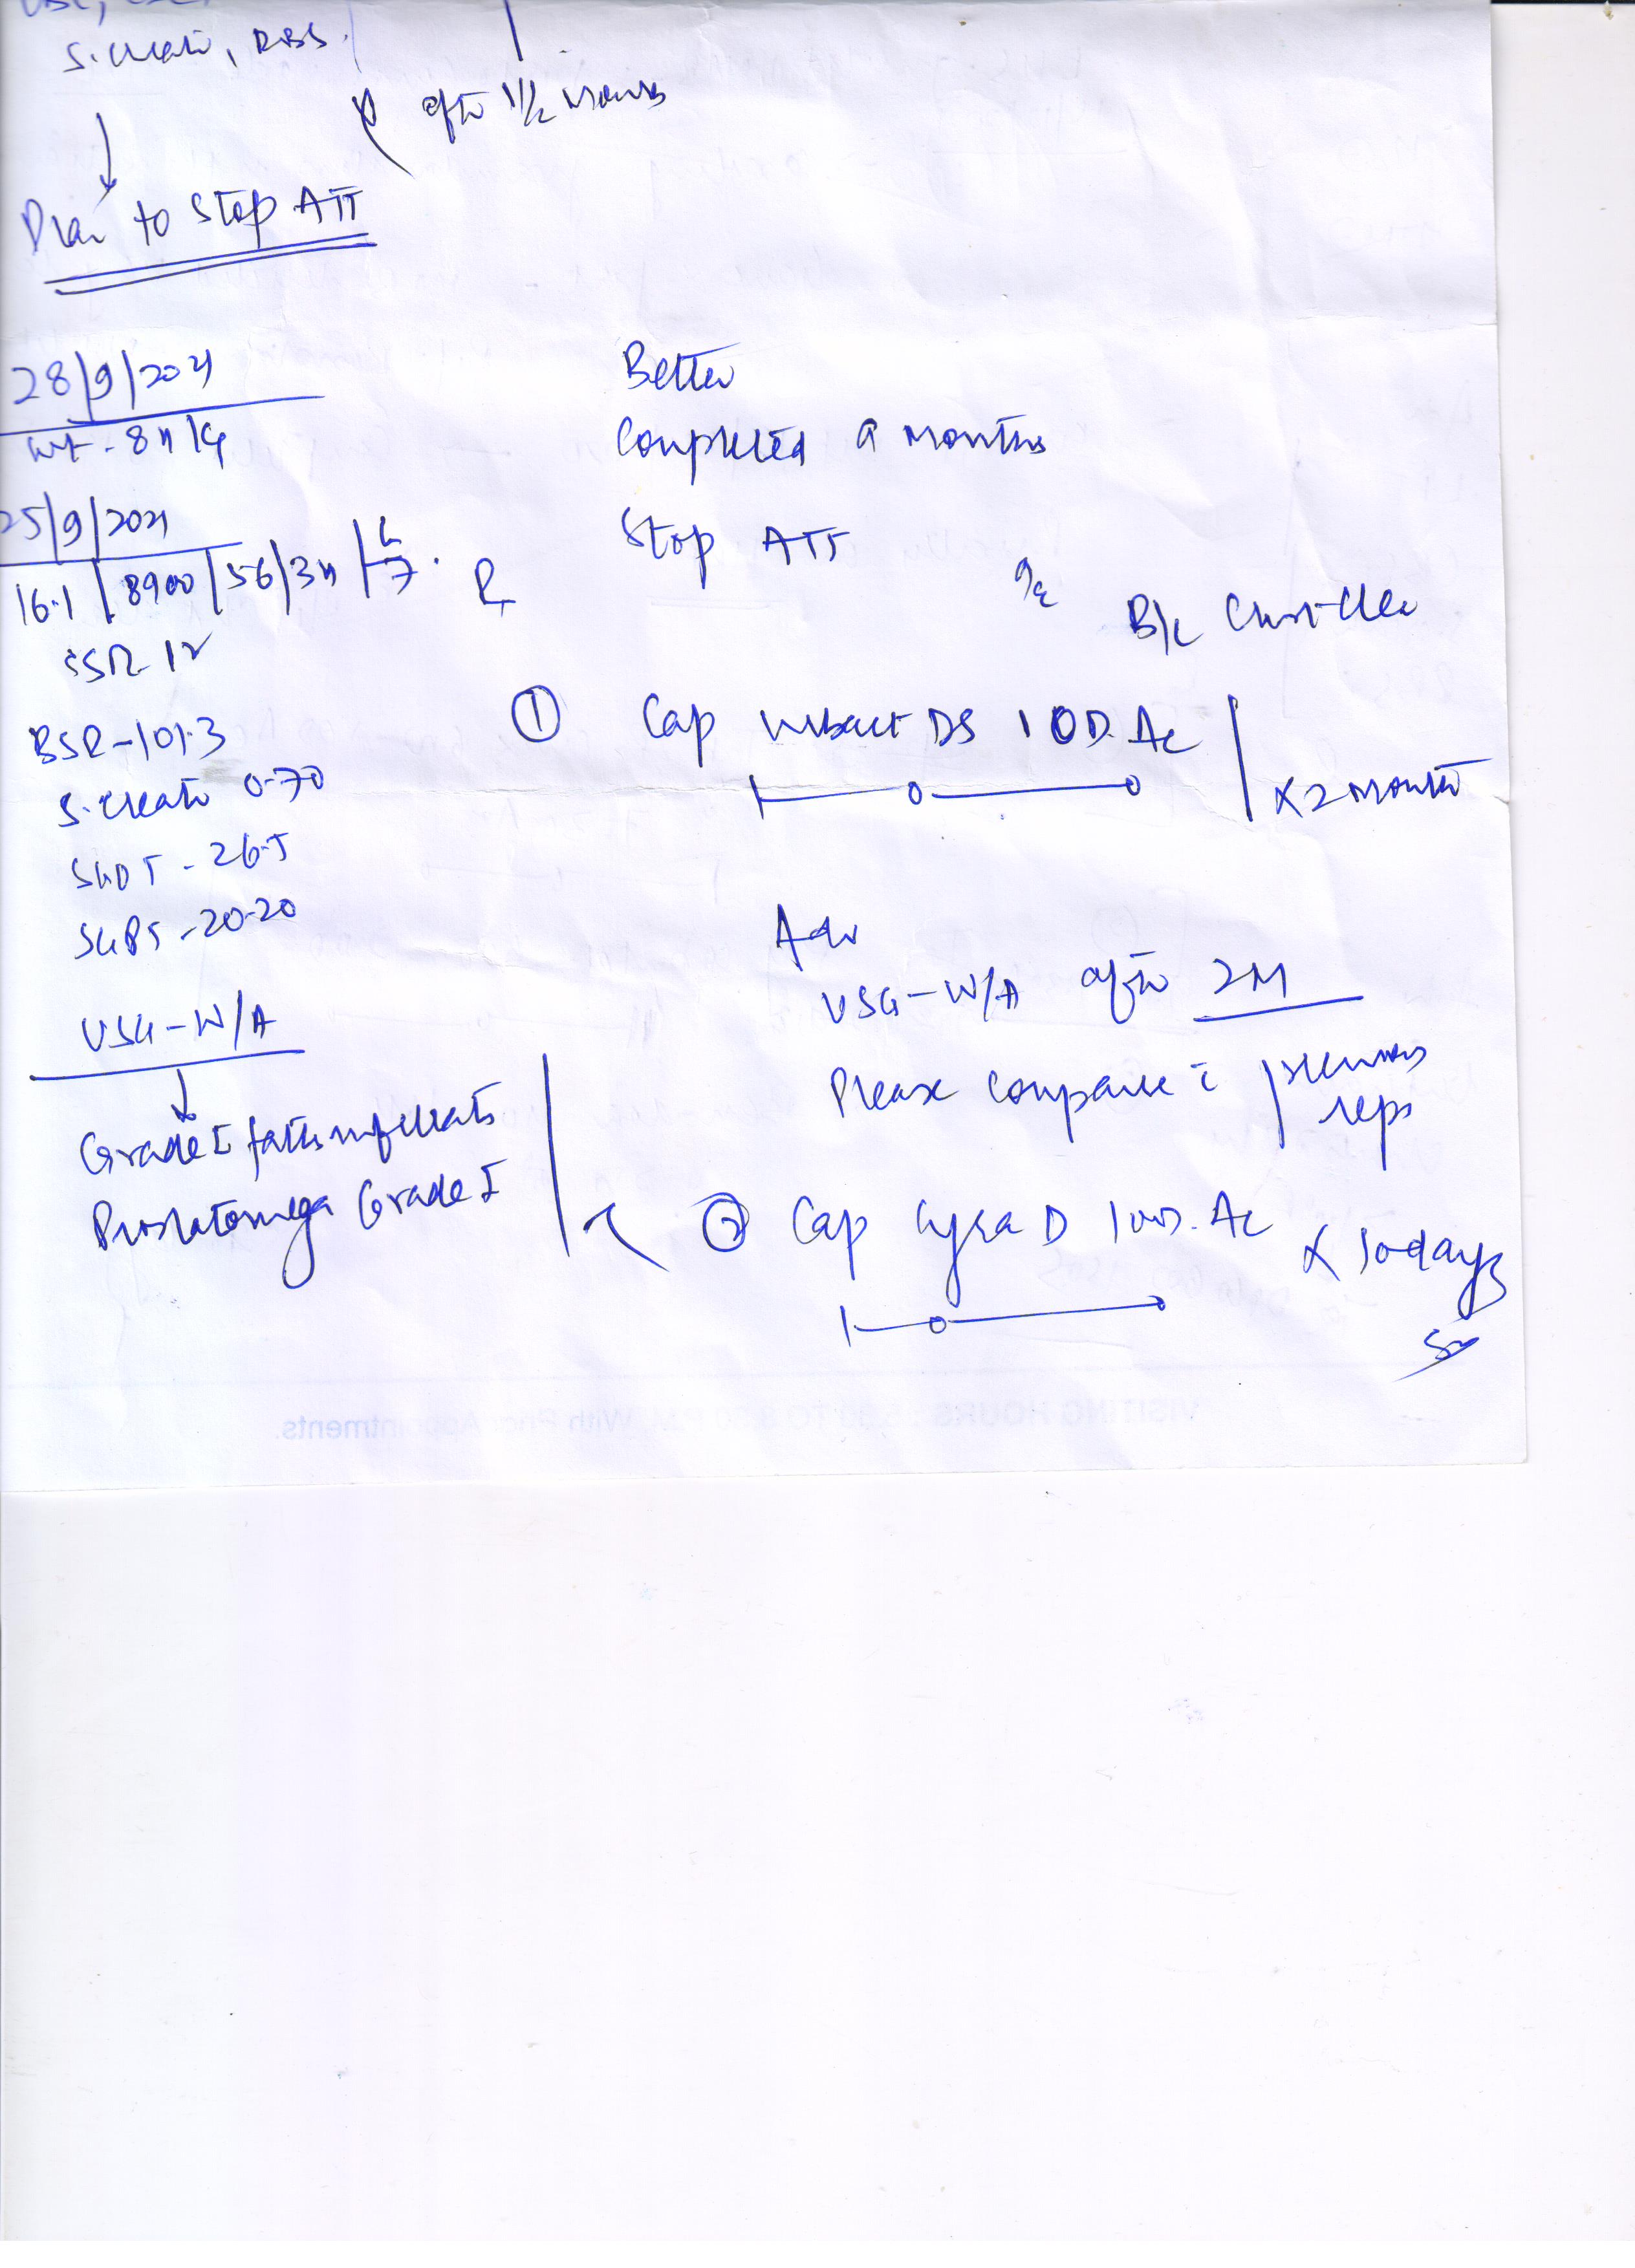 S. Creati, RBS.
after 1½ Months
Plan to Stop ATT
28/9/2021
Wt - 84 kg
25/9/2021
16.1 | 8900 | 56/34 |
ESR - 12
BSR - 101.3
S. Creati 0.70
SGOT - 26.5
SGPT - 20.20
USG - W/A
Grade I fatty infiltrats
Prostatomega Grade I
Better
Completed 9 Months
Stop ATT
O/E
B/L Chest - Clear
R
① Cap DS 1 OD. Ac
X 2 Months
Adv
USG - W/A after 2M
Please Compare c̄ previous
reps
② Cap Cyra D 1 OD. Ac X 10 days
VISITING HOURS : 5.30 TO 8.30 P.M. With Prior Appointments.